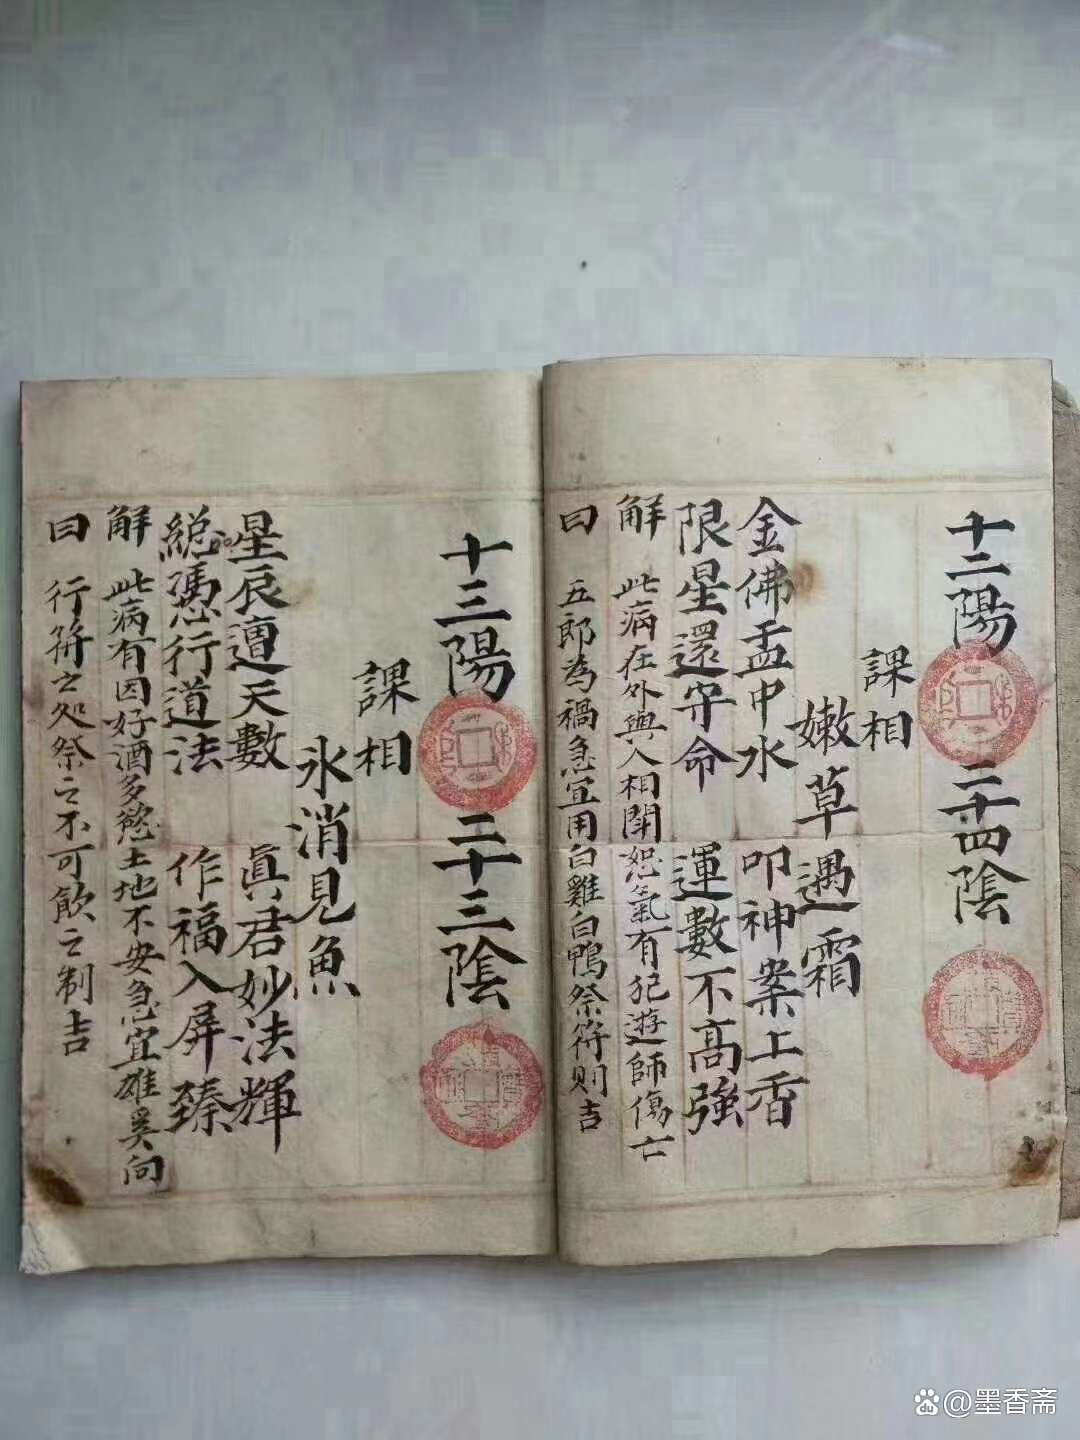 十二陽 二十四陰
課相
嫩草遇霜
金佛盂中水 叩神案上香
限星還守命 運數不高強
解 此病在外與人相鬧怒氣有犯遊師傷亡
曰 五郎為禍急宜用白雞白鴨祭符則吉
十三陽 二十三陰
課相
氷消見魚
星辰遭天數 真君妙法輝
総憑行道法 作福入屏臻
解 此病有因好酒多慾土地不安急宜雄奚向
曰 行符之処祭之不可飲之制吉
@墨香斋